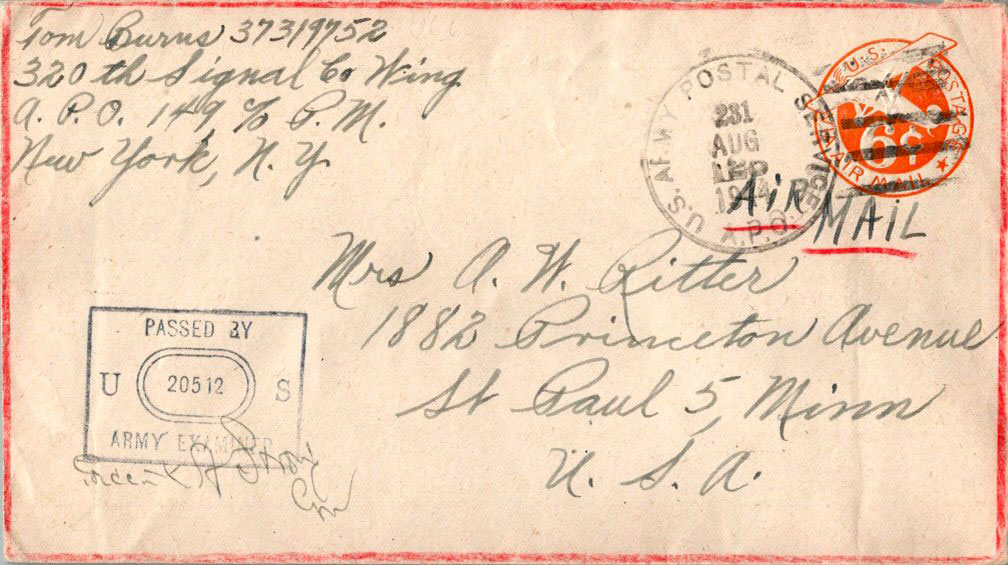 Tom Burns 37319752
320th Signal Co Wing
A. P. O. 149, % P. M.
New York, N. Y.
U.S. ARMY POSTAL SERVICE
A.P.O.
231
AUG
1944
U.S. POSTAGE
6¢
AIR MAIL
AIR MAIL
Mrs A. W. Ritter
1882 Princeton Avenue
St Paul 5, Minn
U. S. A.
PASSED BY
U 20512 S
ARMY EXAMINER